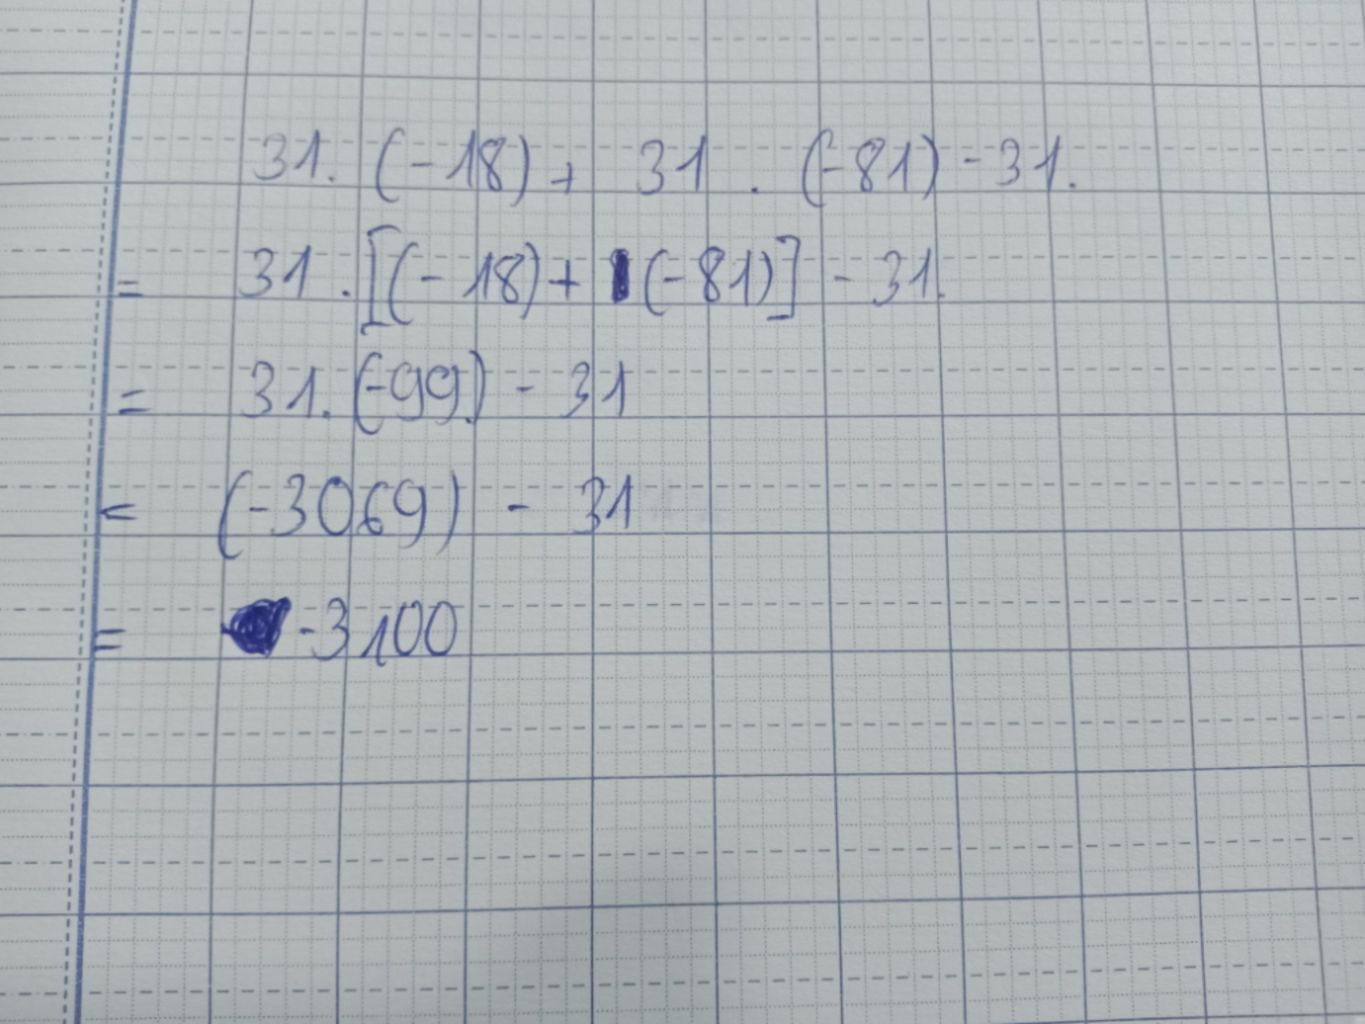 31. (-18) + 31 . (-81) - 31.
= 31 . [(-18) + (-81)] - 31.
= 31. (-99) - 31
= (-3069) - 31
= -3100